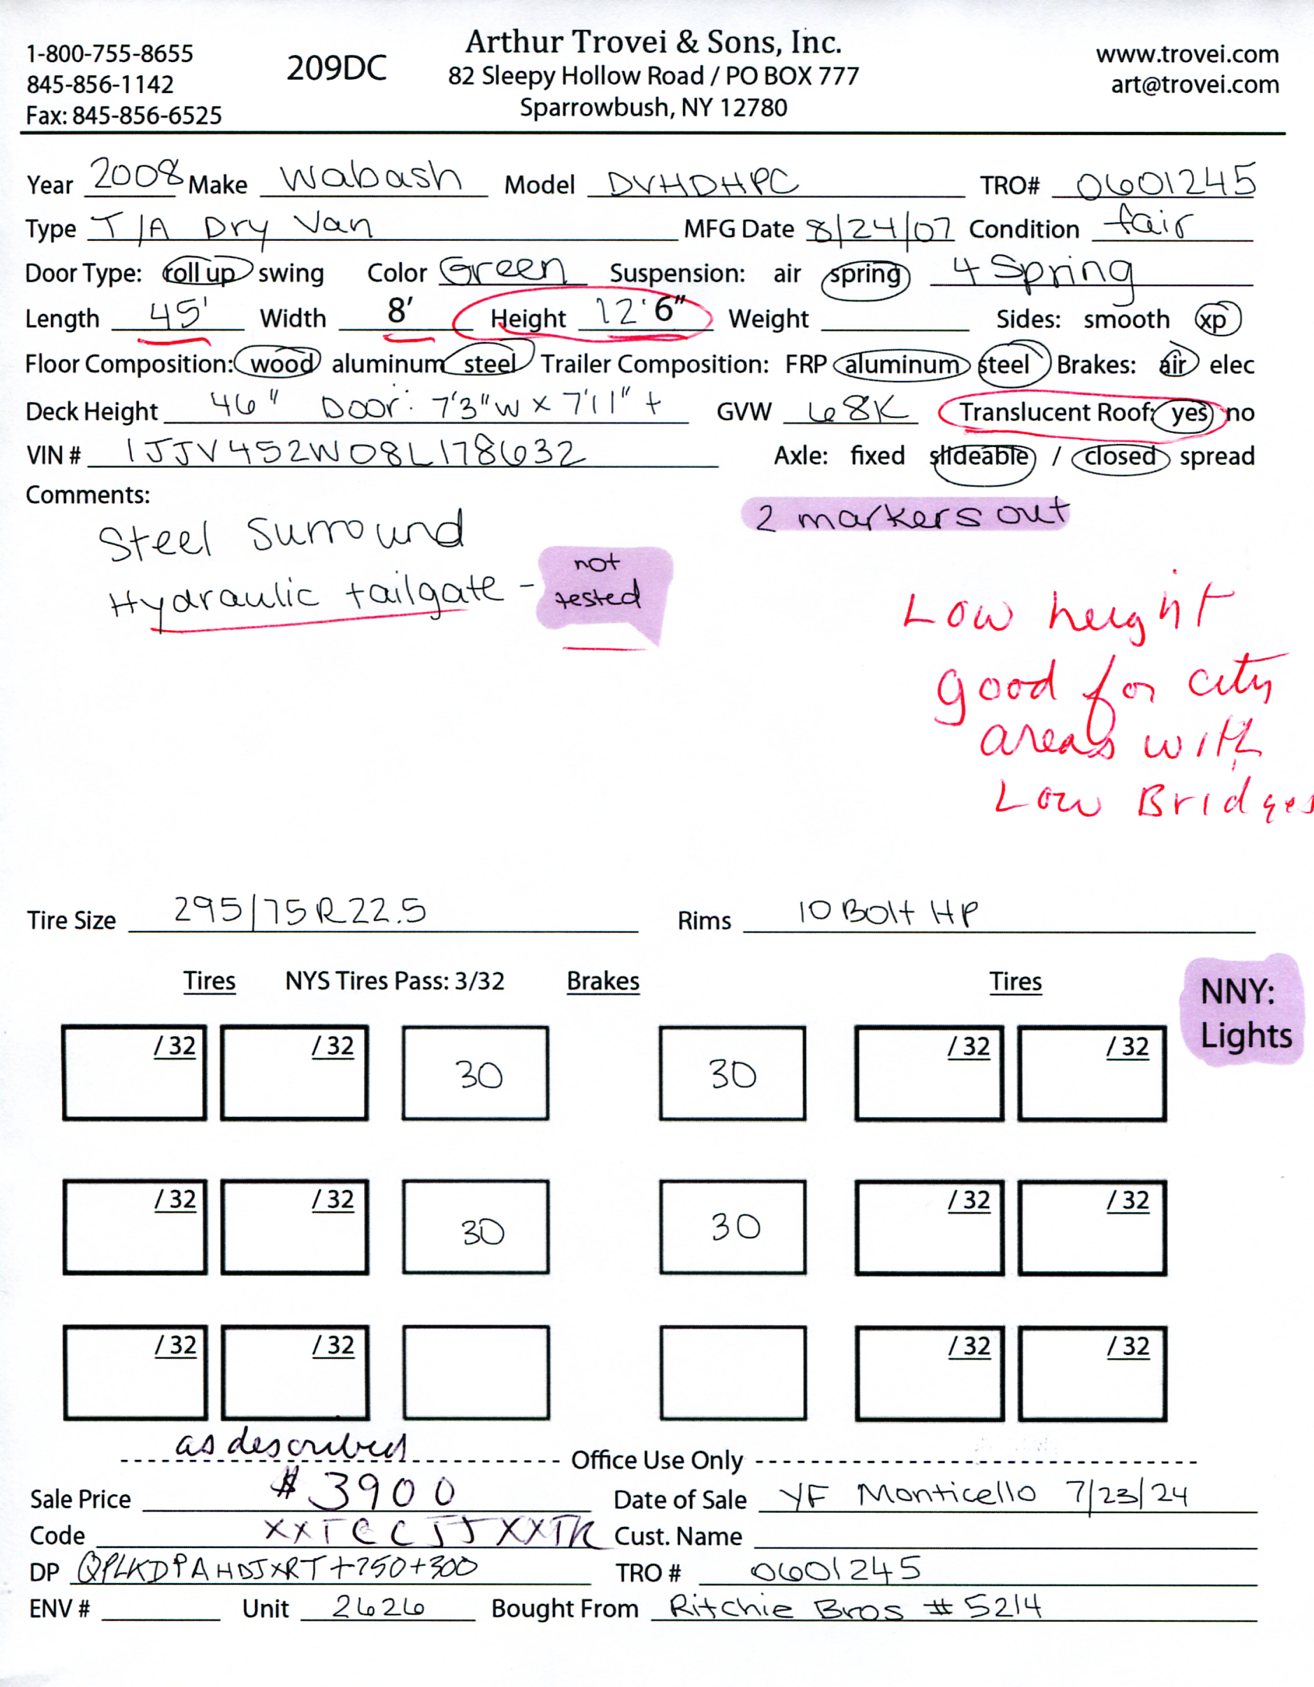 1-800-755-8655
845-856-1142
Fax: 845-856-6525
209DC
Arthur Trovei & Sons, Inc.
82 Sleepy Hollow Road / PO BOX 777
Sparrowbush, NY 12780
www.trovei.com
art@trovei.com
Year 2008 Make Wabash Model DVHDHPC TRO# 0601245
Type T/A Dry Van MFG Date 8/24/07 Condition fair
Door Type: roll up swing Color Green Suspension: air spring 4 Spring
Length 45' Width 8' Height 12'6" Weight Sides: smooth xp
Floor Composition: wood aluminum steel Trailer Composition: FRP aluminum steel Brakes: air elec
Deck Height 46" Door: 7'3"W x 7'11" + GVW 68K Translucent Roof: yes no
VIN # 1JJV452W08L178632 Axle: fixed slideable / closed spread
Comments:
2 markers out
Steel Surround
Hydraulic tailgate - not tested
Low height
good for city
areas with
Low Bridges
Tire Size 295/75R22.5 Rims 10 Bolt HP
Tires NYS Tires Pass: 3/32 Brakes Tires
NNY:
Lights
/ 32 / 32 30 30 / 32 / 32
/ 32 / 32 30 30 / 32 / 32
/ 32 / 32 / 32 / 32
as described
Office Use Only
Sale Price $3900 Date of Sale YF Monticello 7/23/24
Code Cust. Name
DP QPLKDPAHDJXRT+750+300 TRO # 0601245
ENV # Unit 2626 Bought From Ritchie Bros # 5214